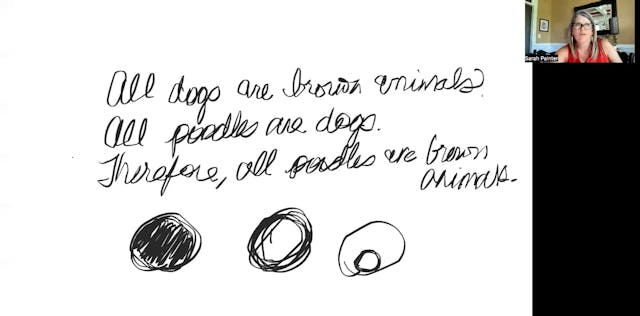 All dogs are brown animals.
All poodles are dogs.
Therefore, all poodles are brown
animals.
Sarah Painter